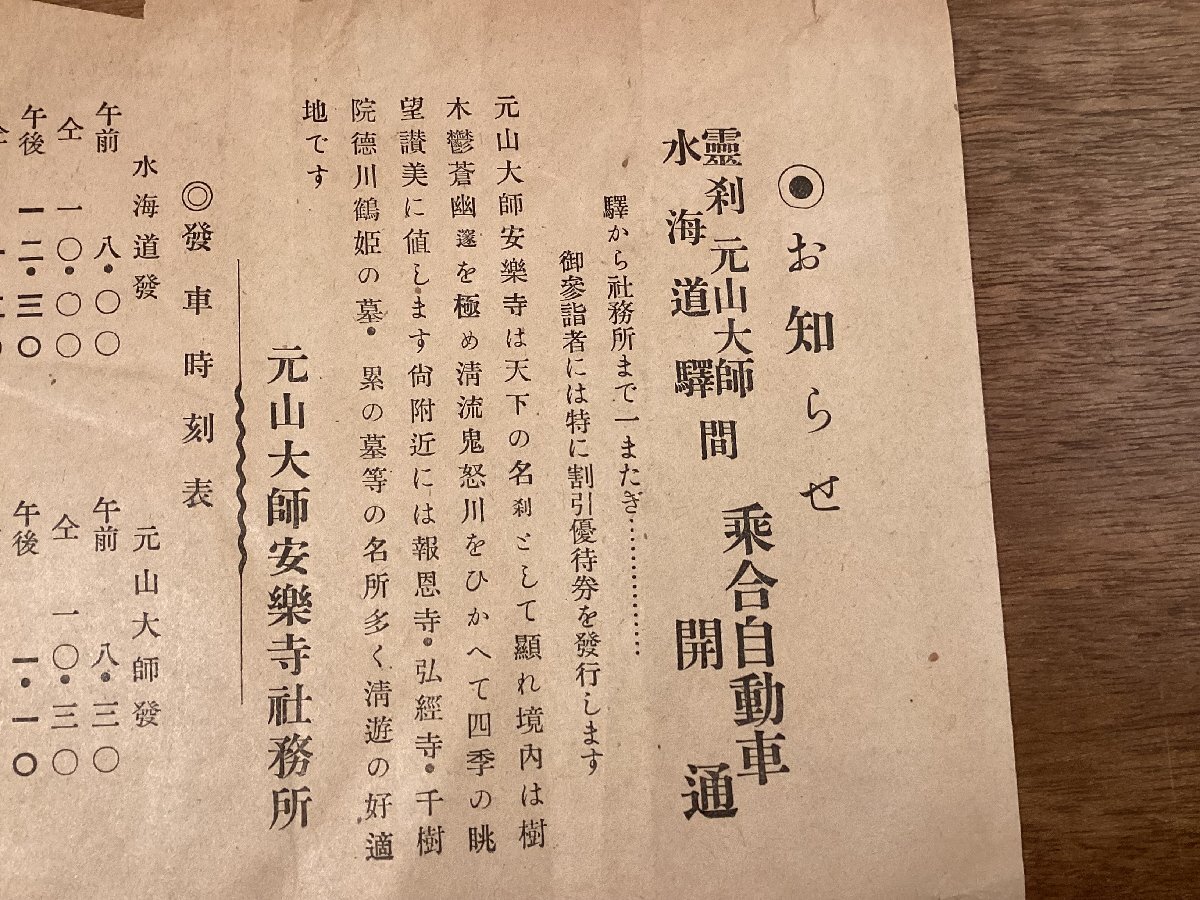 ◉お知らせ
靈刹元山大師
水海道驛間
乘合自動車
開通
驛から社務所まで一またぎ…………
御參詣者には特に割引優待券を發行します
元山大師安樂寺は天下の名刹として顯れ境內は樹
木鬱蒼幽邃を極め淸流鬼怒川をひかへて四季の眺
望讃美に値します尙附近には報恩寺・弘經寺・千樹
院德川鶴姬の墓・累の墓等の名所多く淸遊の好適
地です
元山大師安樂寺社務所
◎發車時刻表
水海道發
午前 八・〇〇
仝 一〇・〇〇
午後 一二・三〇
元山大師發
午前 八・三〇
仝 一〇・三〇
午後 一・一〇